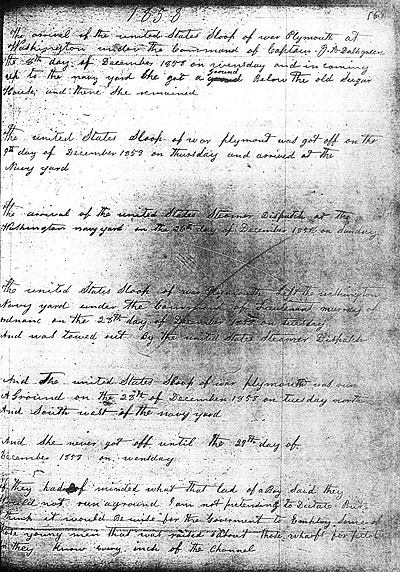 1858
The arrival of the united States Sloop of war Plymouth at
Washington under the Command of Captain J. A. Dahlgreen
the 8th day of December 1858 on wensday and in coming
up to the navy yard She got a ground Below the old Sugar
House and there She remained
The united States Sloop of war plymont was got off on the
9th day of December 1858 on thursday and arrived at the
Navy yard
The arrival of the united States Steamer Dispatch at the
Washington navy yard on the 26th day of December 1858 on Sunday
The united States Sloop of war Plymouth left the washington
Navy yard under the Command of Lieutenant
on the 28th day of December 1858 on tuesday
And was towed out By the united States Steamer Dispatch
And The united States Sloop of war plymouth was run
A Ground on the 28th of December 1858 on tuesday north
And South west of the navy yard
And She never got off until the 29th day of
December 1858 on wensday
if they had of minded what that lad of a Boy Said they
would not run aground I am not pretending to Dictate But
think it would Be wise for the Government to Employ Some of
those young men that was raised About those wharfs for pilots
they know every inch of the Channel